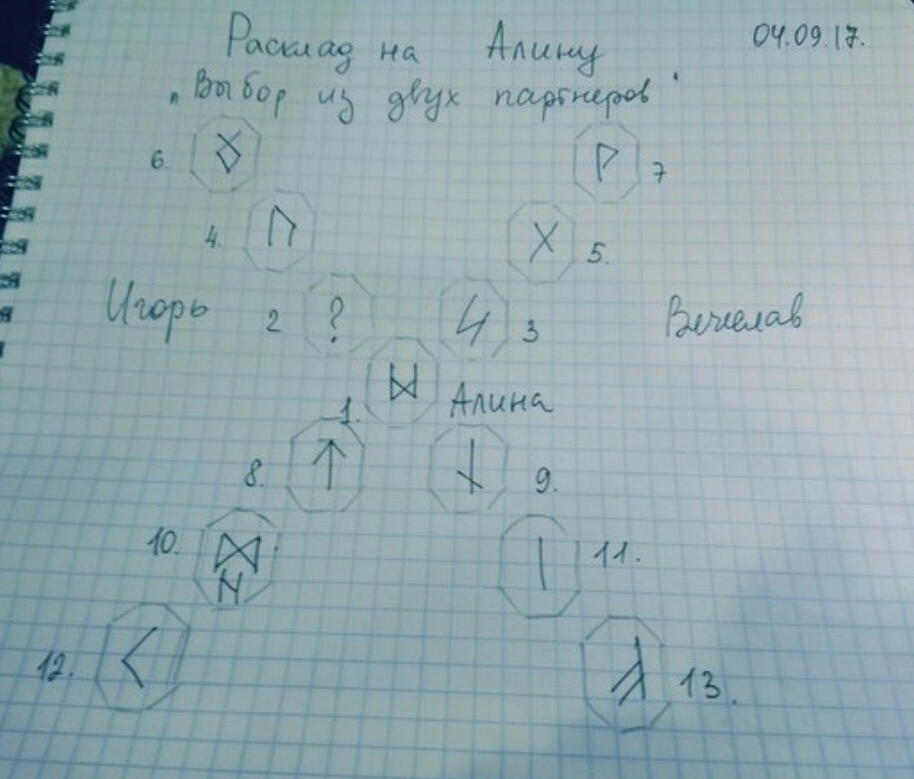 Расклад на Алину 04.09.17.
„Выбор из двух партнеров"
6. 7
4. 5.
Игорь 2 ? 3 Вячеслав
1. Алина
8. 9.
10. 11.
12. 13.